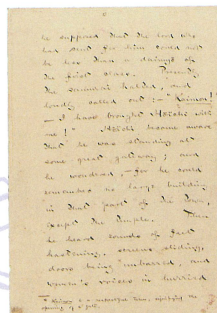 he supposed that the lord who
had sent for him could not
be less than a daimyō of
the first class. Presently
the samurai halted, and
loudly called out — "Kaimon!"
— I have brought Hōïchi with
me!" Hōïchi became aware
that he was standing at
some great gateway; and
he wondered, — for he could
remember no large building
in that part of the town,
except the temple. Then
he heard sounds of feet
hastening, screens sliding,
doors being unbarred, and
women's voices in hurried
* Kaimon is a respectful term, signifying the
opening of a gate.